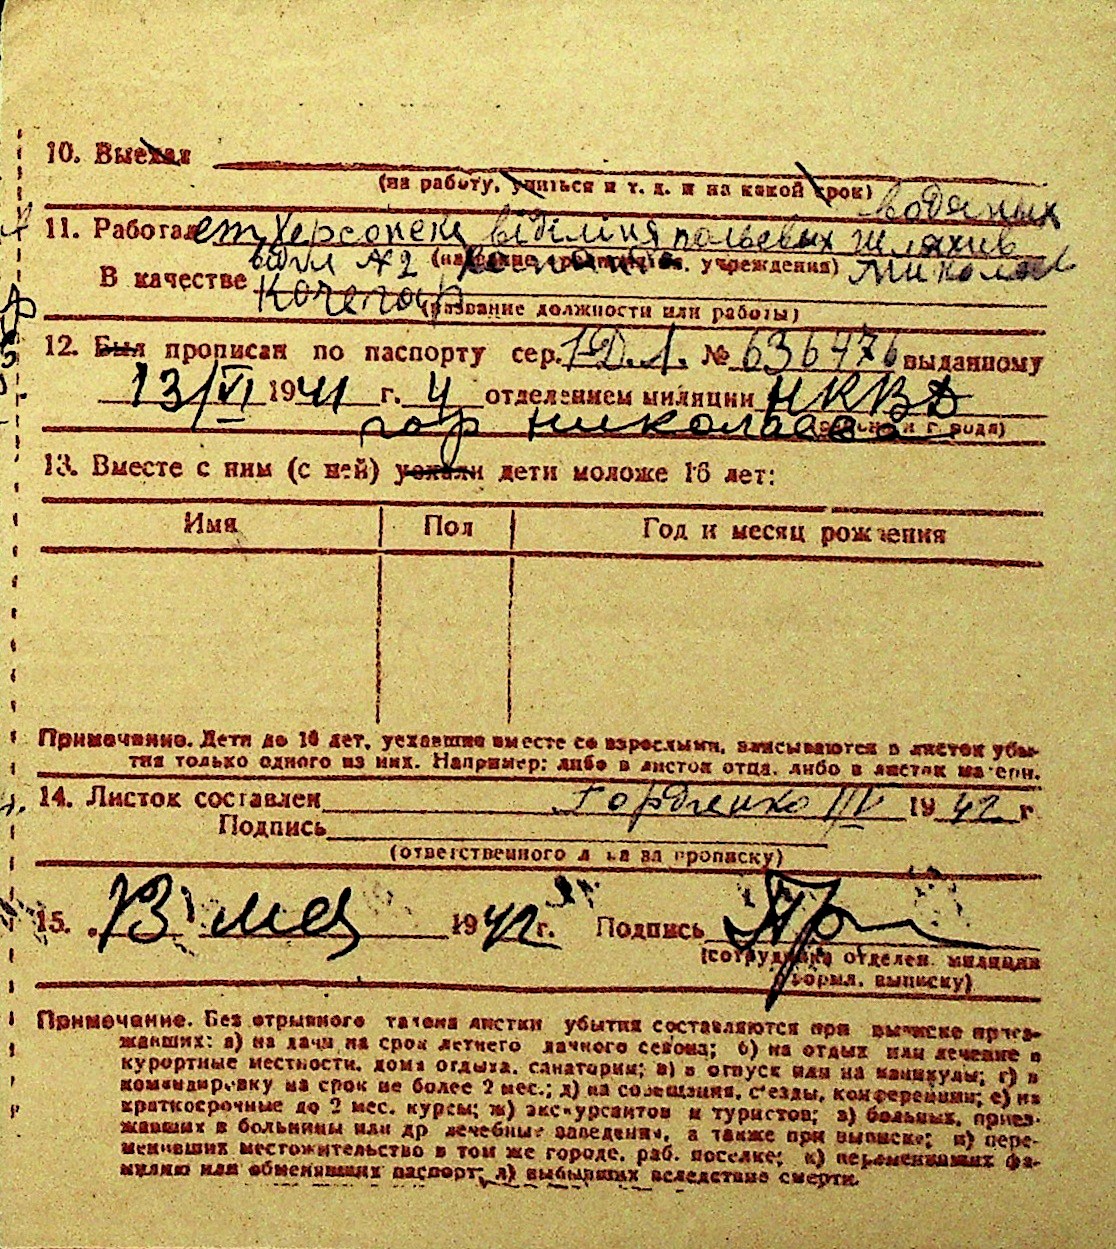 10. Выехал
(на работу, учиться и т. д. и на какой срок)
водяных
11. Работает Херсонска віділіня польевых шляхив
відділ №2 учреждения) Микола
В качестве Кочегар
(название должности или работы)
12. Был прописан по паспорту сер. № 636476 выданному
13/VI 1941 г. 4 отделением милиции НКВД
гор Николаева
13. Вместе с ним (с ней) уехали дети моложе 16 лет:
Имя Пол Год и месяц рождения
Примечание. Дети до 16 лет, уехавшие вместе со взрослыми, записываются в листок убы-
тия только одного из них. Например: либо в листок отца, либо в листок матери.
14. Листок составлен Гордиенко IV 1942 г
Подпись
(ответственного л ца за прописку)
15. „13" мая 1942 г. Подпись
(сотрудника отделен. милиции
оформл. выписку)
Примечание. Без отрывного талона листки убытия составляются при выписке приез-
жавших: а) на дачи на срок летнего дачного сезона; б) на отдых или лечение в
курортные местности, дома отдыха, санатории; в) в отпуск или на каникулы; г) в
командировку на срок не более 2 мес.; д) на совещания, съезды, конференции; е) на
краткосрочные до 2 мес. курсы; ж) экскурсантов и туристов; з) больных, приез-
жавших в больницы или др лечебные заведения, а также при выписке; и) пере-
менивших местожительство в том же городе, раб. поселке; к) переменивших фа-
милию или обменявших паспорт; л) выбывших вследствие смерти.